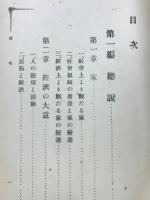 目次
第一編 總說
第一章 家
一、社會上より觀たる家
二、社會組織の發達と家の變遷
三、經濟上より觀たる家の變遷
第二章 經濟の大意
一、人の慾望と活動
二、活動と經濟
目次
一